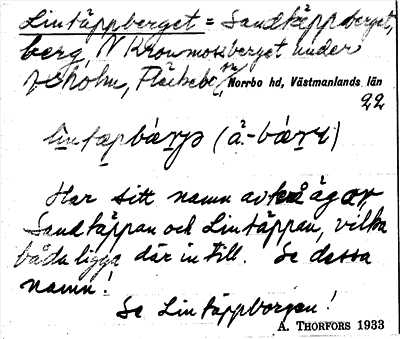 Lintäppberget = Sandtäppberget,
berg, N Kronmossberget under
Fläckebo sn, Norrbo hd, Västmanlands län
22
Har sitt namn av två ägor,
Sandtäppan och Lintäppan, vilka
båda ligga där intill. Se dessa
namn!
Se Lintäppborgen!
A. THORFORS 1933